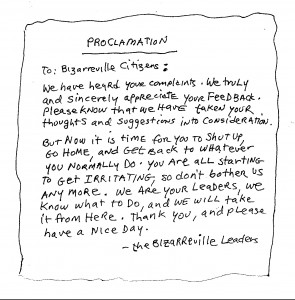 PROCLAMATION
To: Bizarreville Citizens:
We have heard your complaints. We truly
and sincerely appreciate your FeedBack.
Please know that we HAVE taken your
thoughts and suggestions into CONSIDERATION.
But Now it is time FOR YOU TO SHUT UP,
GO HOME, and GET BACK to WHATEVER
YOU NORMALLY DO. YOU ARE ALL STARTING
TO GET IRRITATING, so don't bother US
ANY MORE. WE ARE YOUR LEADERS, WE
KNOW WHAT TO DO, and WE WILL TAKE
it FROM HERE. THANK you, and please
have a NICE DAY.
- the BIZARREVILLE LEADERS